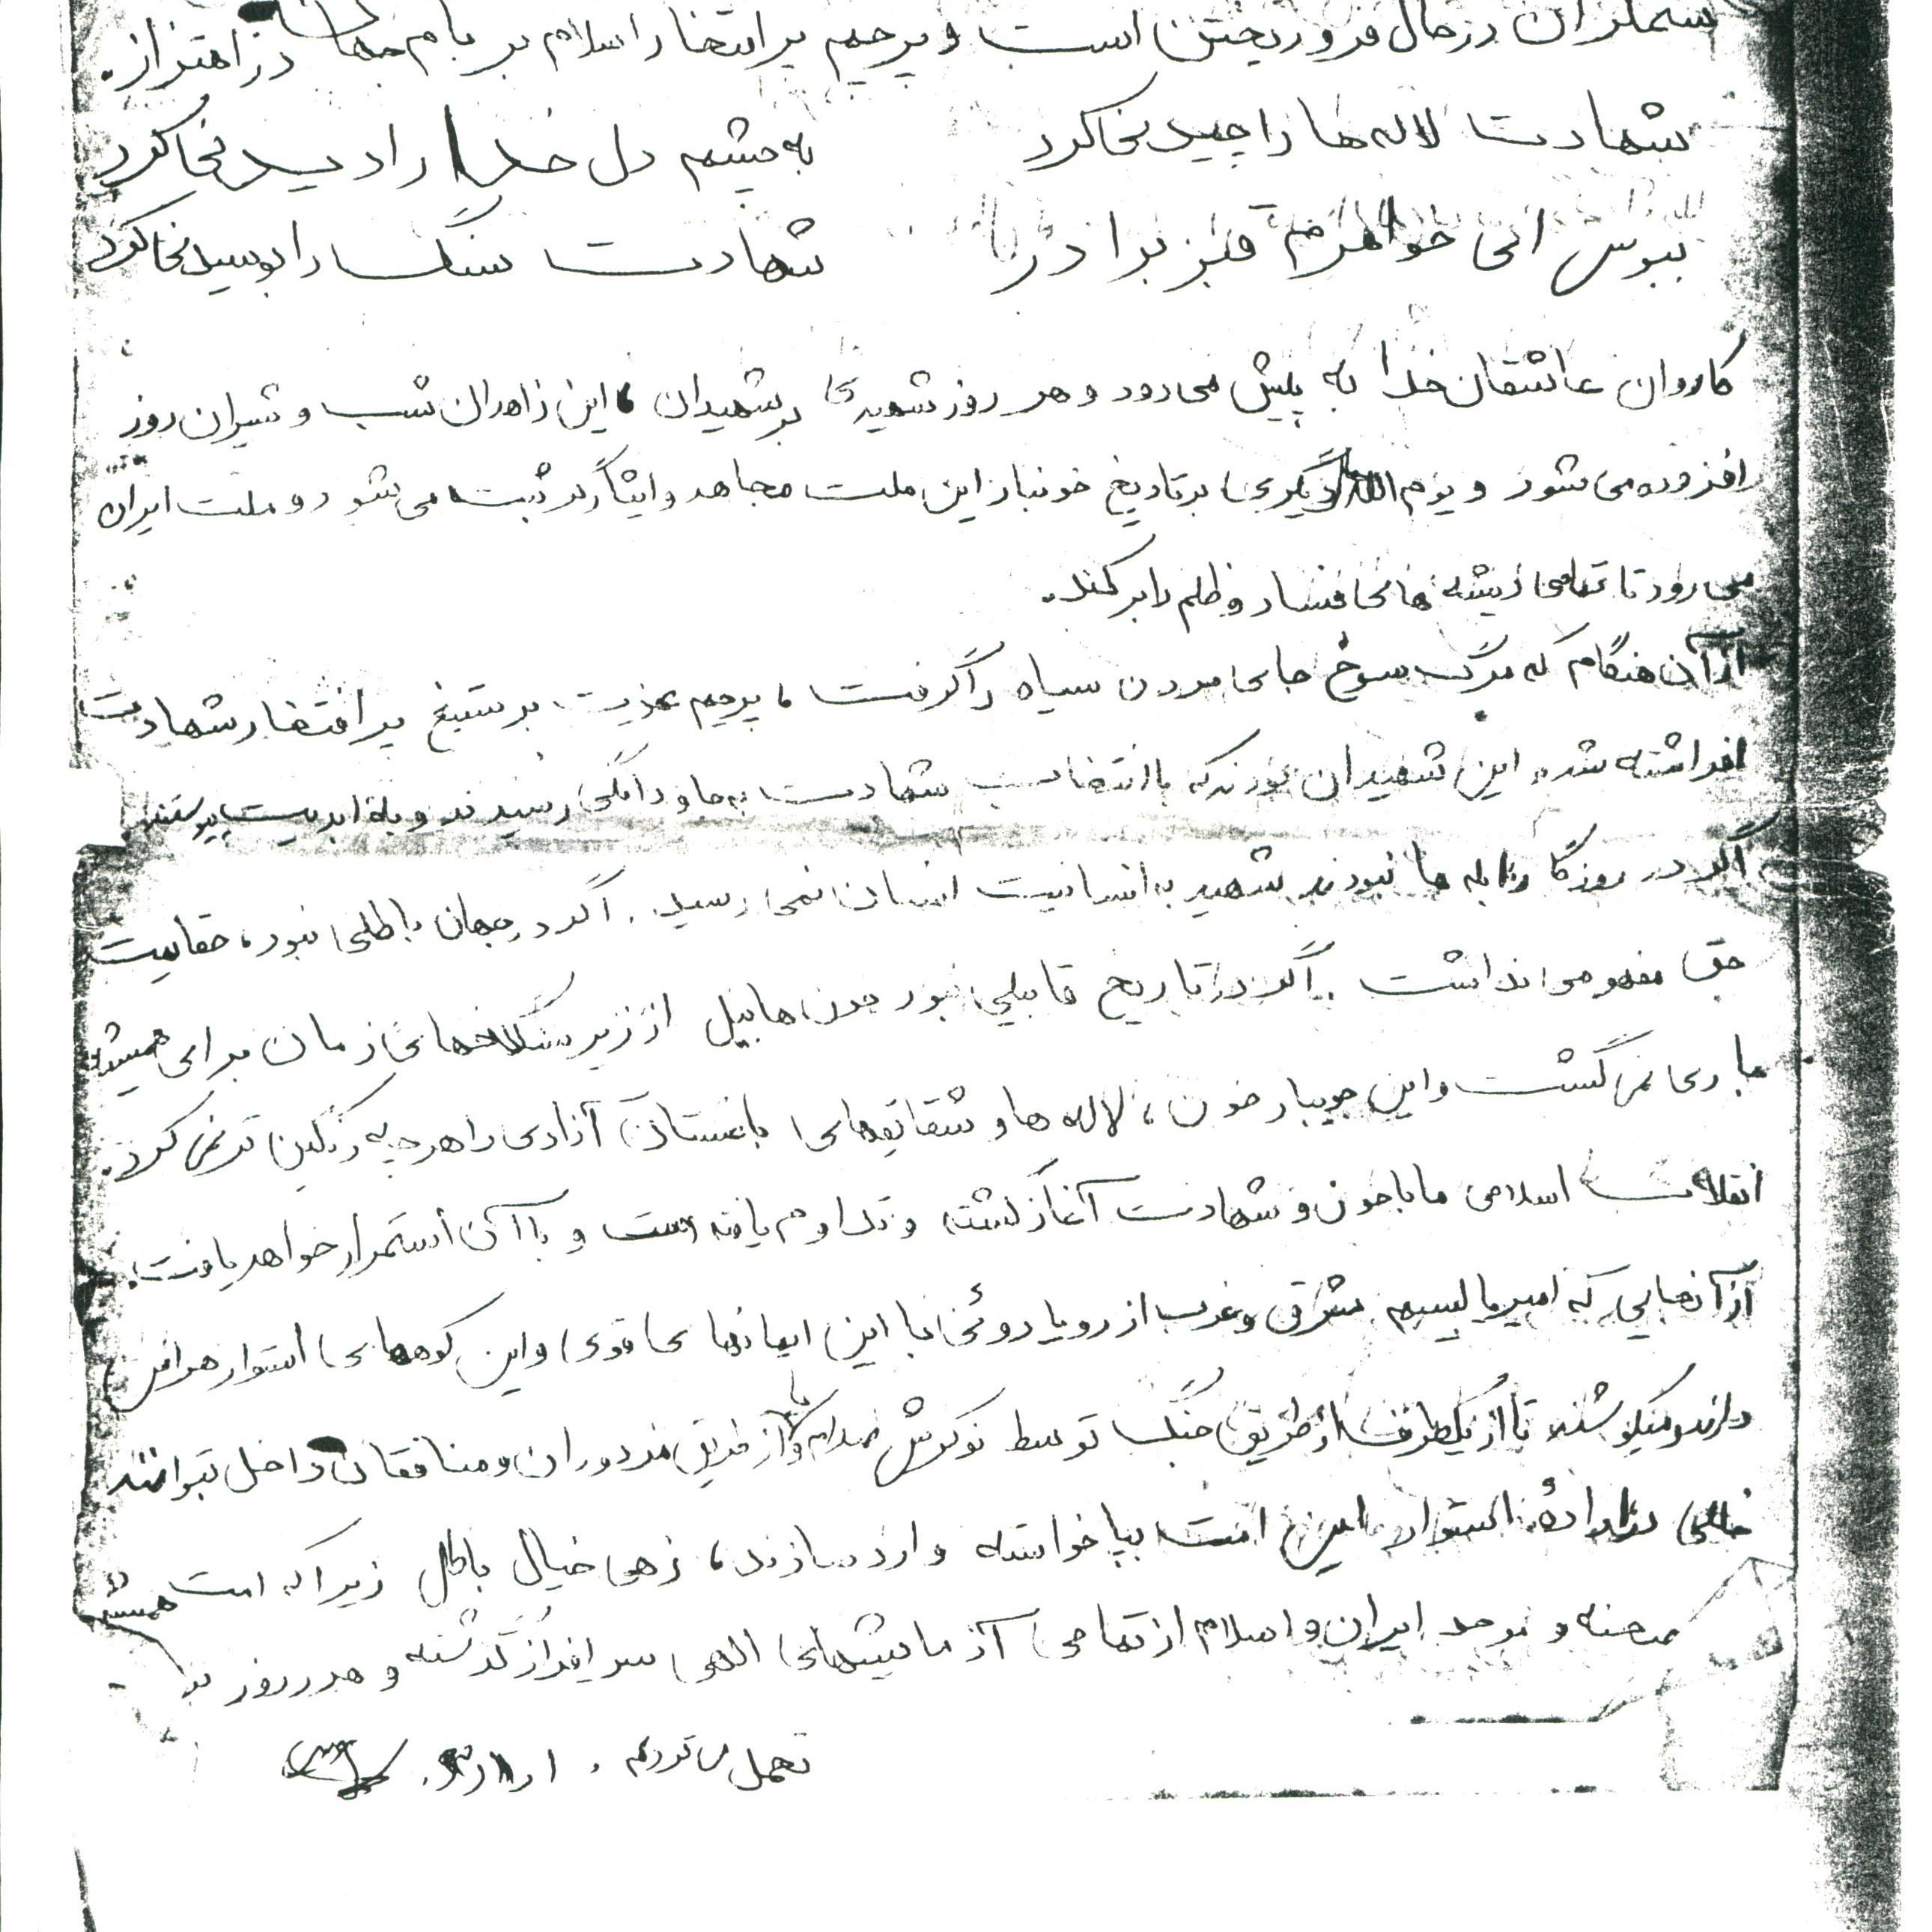 ستمگران در حال فرو ریختن است و پرچم پر افتخار اسلام بر بام جهان در اهتزاز.
شهادت لاله ها را چیدنی کرد به چشم دل خدا را دیدنی کرد
ببوس ای خواهرم قبر برادر شهادت سنگ را بوسیدنی کرد
کاروان عاشقان خدا به پیش می رود و هر روز شهیدی بر شهیدان ، این زاهدان شب و شیران روز
افزوده می شود و یوم الله دیگری بر تاریخ خونبار این ملت مجاهد و ایثارگر ثبت می شود و ملت ایران
می رود تا تمامی ریشه های فساد و ظلم را بر کند.
از آن هنگام که مرگ سرخ جای مردن سیاه را گرفت ، پرچم عزت بر ستیغ پر افتخار شهادت
افراشته شد. این شهیدان بودند که با انتخاب شهادت به جاودانگی رسیدند و به ابدیت پیوستند.
اگر در روزگار لاله ها نبودند شهید به انسانیت انسان نمی رسید. اگر در جهان باطلی نبود، حقانیت
حق مفهومی نداشت . اگر در تاریخ قابیلی نبود خون هابیل از زیر سنگلاخهای زمان برای همیشه
جاری نمی گشت و این جویبار خون ، لاله ها و شقایقهای باغستان آزادی را هر چه رنگین تر نمی کرد.
انقلاب اسلامی ما با خون و شهادت آغاز گشته و تداوم یافته است و با آن استمرار خواهد یافت.
از آنجایی که امپریالیسم شرق و غرب از رویاروئی با این ایمانهای قوی و این کوههای استوار هراس
دارند و میکوشند تا از یکطرف از طریق جنگ توسط نوکرش صدام و یا از طریق مزدوران و منافقان داخل بتوانند
خللی در اراده استوار این امت بپا خواسته وارد سازند ، زهی خیال باطل زیرا که امت همیشه در
صحنه و موحد ایران و اسلام از تمامی آزمایشهای الهی سرافراز گذشته و هر روز
تحمل می کردیم .